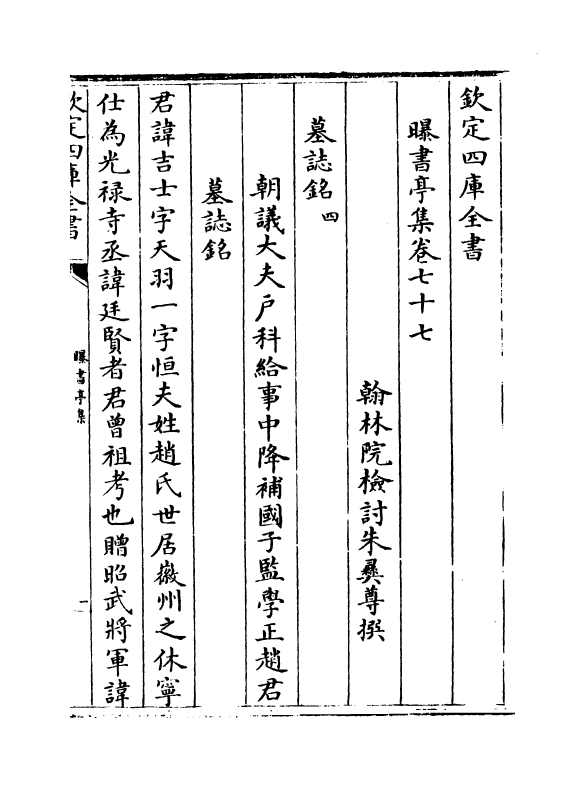 欽定四庫全書
曝書亭集卷七十七
翰林院檢討朱彝尊撰
墓誌銘四
朝議大夫戶科給事中降補國子監學正趙君
墓誌銘
君諱吉士字天羽一字恒夫姓趙氏世居徽州之休寧
仕為光禄寺丞諱廷賢者君曾祖考也贈昭武將軍諱
欽定四庫全書
曝書亭集
一